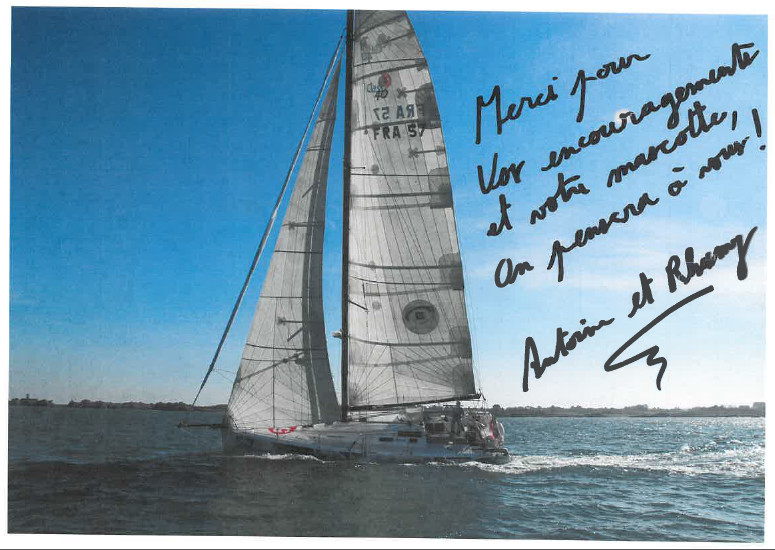 Class
40
FRA 57
FRA 57
Merci pour
Vos encouragements
et votre mascotte,
on pensera à vous!
Antoine et Rhemy